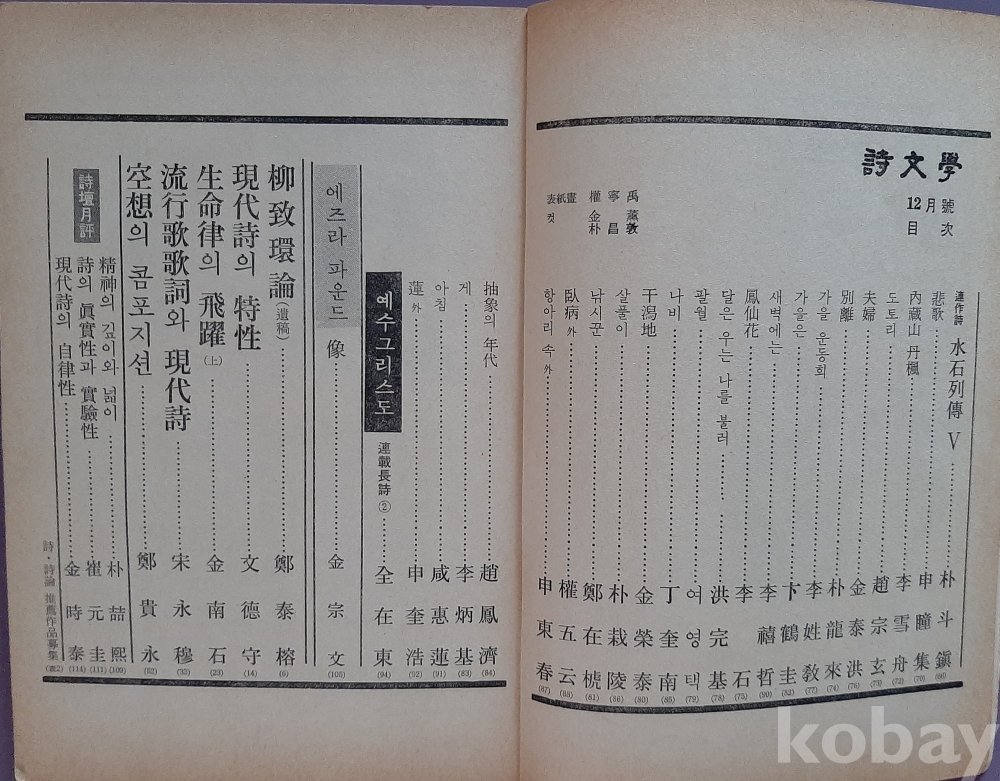 詩文學
12月號
目次
表紙畫 權寧禹
컷 金 薰
朴昌敦
連作詩 水石列傳 V 朴斗鎭 (66)
悲歌 申瞳集 (70)
內藏山 丹楓 李雪舟 (72)
도토리 趙宗玄
夫婦 金泰洪 (76)
別離 朴龍來 (74)
가을 운동회 李姓敎 (77)
가을은 卞鶴圭 (82)
새벽에는 李禧哲 (90)
鳳仙花 李石
달은 우는 나를 불러 洪完基 (78)
팔월 여영택 (79)
나비 丁奎南 (85)
干潟地 金榮泰 (80)
살풀이 朴栽陵
낚시꾼 鄭在琥 (81)
臥病 外 權五云 (88)
항아리 속 外 申東春 (87)
抽象의 年代 趙鳳濟 (84)
게 李炳基 (83)
아침 咸惠蓮 (91)
蓮 外 申奎浩 (92)
예수그리스도 連載長詩② 全在東 (94)
에즈라 파운드 像 金宗文 (106)
柳致環論(遺稿) 鄭泰榕 (6)
現代詩의 特性 文德守 (14)
生命律의 飛躍(上) 金南石 (23)
流行歌歌詞와 現代詩 宋永穆 (33)
空想의 콤포지션 鄭貴永 (52)
詩壇月評
精神의 깊이와 넓이 朴喆熙 (109)
詩의 眞實性과 實驗性 崔元圭 (111)
現代詩의 自律性 金時泰 (114)
詩·詩論 推薦作品募集 (表2)
kobay